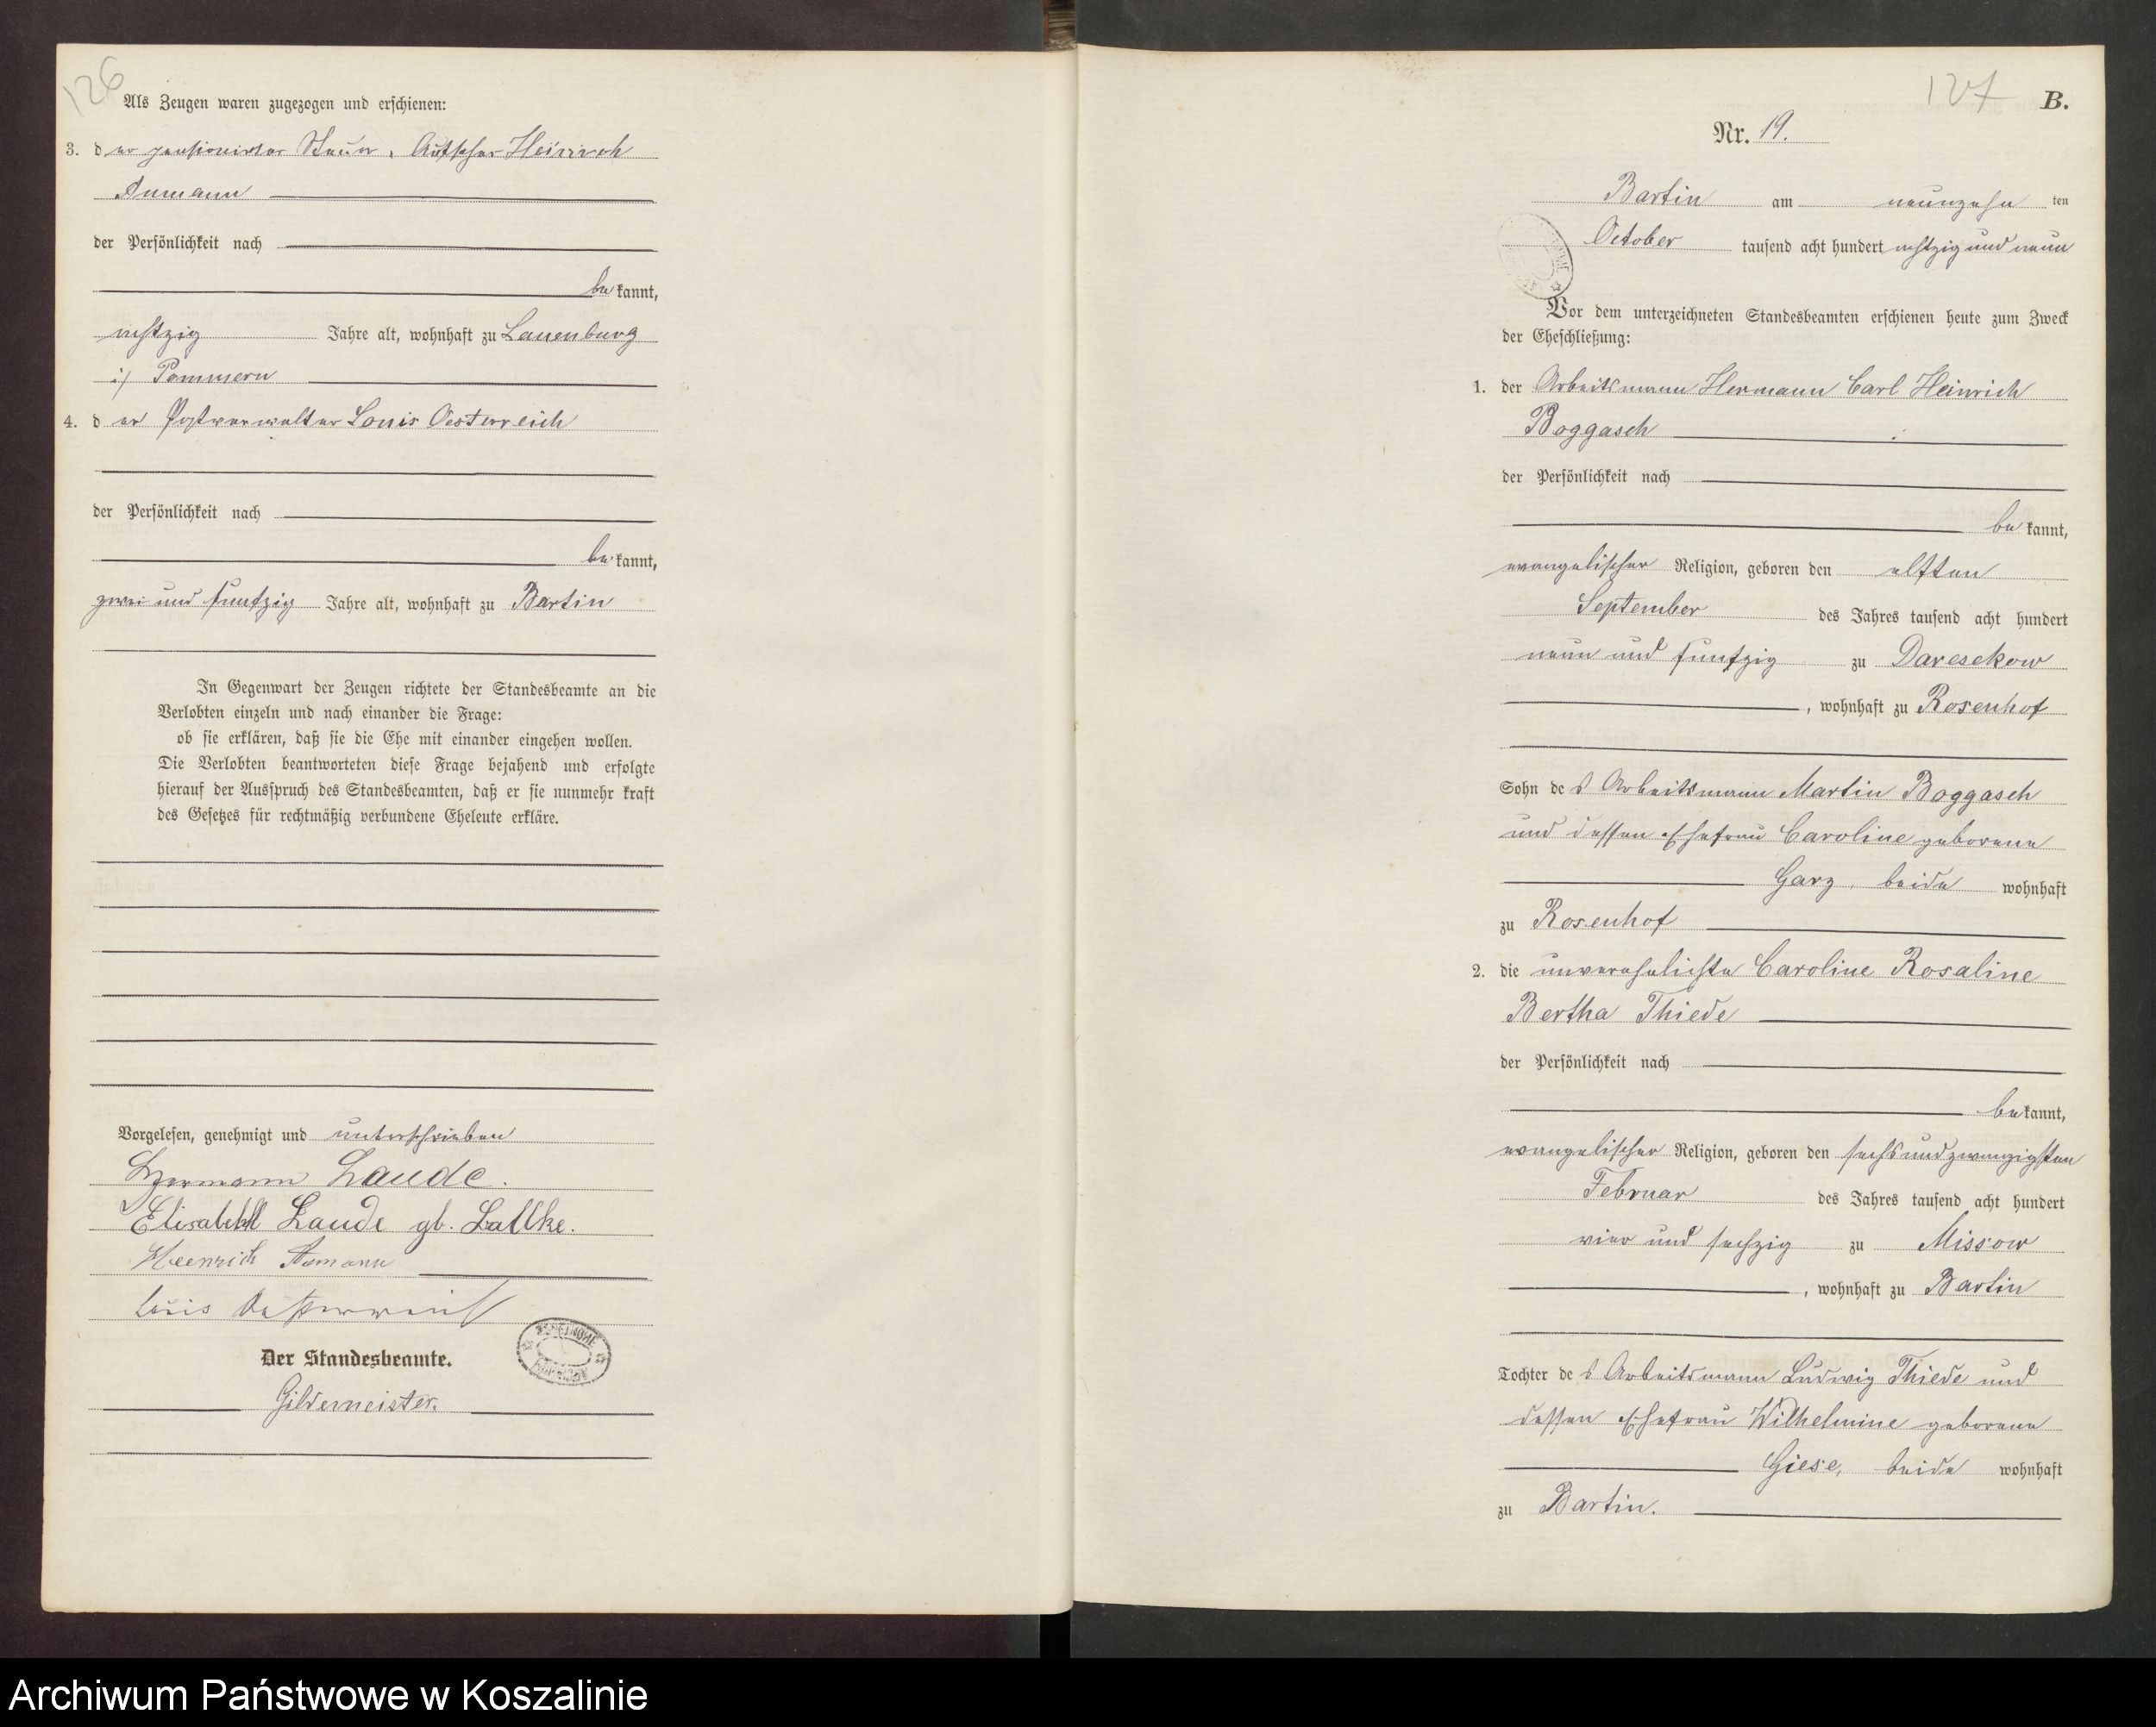 126
Als Zeugen waren zugezogen und erschienen:
3. der pensionirter Steuer. Aufseher Heinrich
Aumann
der Persönlichkeit nach
bekannt,
achtzig Jahre alt, wohnhaft zu Lauenburg
i/ Pommern
4. der Postverwalter Louis Oesterreich
der Persönlichkeit nach
bekannt,
zwei und funfzig Jahre alt, wohnhaft zu Bartin
In Gegenwart der Zeugen richtete der Standesbeamte an die
Verlobten einzeln und nach einander die Frage:
ob sie erklären, daß sie die Ehe mit einander eingehen wollen.
Die Verlobten beantworteten diese Frage bejahend und erfolgte
hierauf der Ausspruch des Standesbeamten, daß er sie nunmehr kraft
des Gesetzes für rechtmäßig verbundene Eheleute erkläre.
Vorgelesen, genehmigt und unterschrieben
Hermann Laude.
Elisabeth Laude gb.
Heinrich
Louis Oesterreich
Der Standesbeamte.
Gildemeister.
127
B.
Nr. 19.
Bartin am neunzehn ten
October tausend acht hundert achtzig und neun
Vor dem unterzeichneten Standesbeamten erschienen heute zum Zweck
der Eheschließung:
1. der Arbeitsmann Hermann Carl Heinrich
Boggasch
der Persönlichkeit nach
bekannt,
evangelischer Religion, geboren den elften
September des Jahres tausend acht hundert
neun und funfzig zu Daresekow
, wohnhaft zu Rosenhof
Sohn des Arbeitsmann Martin Boggasch
und dessen Ehefrau Caroline geborene
Garz, beide wohnhaft
zu Rosenhof
2. die unverehelichte Caroline Rosaline
Bertha Thiede
der Persönlichkeit nach
bekannt,
evangelischer Religion, geboren den sechsundzwanzigsten
Februar des Jahres tausend acht hundert
vier und sechzig zu Missow
, wohnhaft zu Bartin
Tochter des Arbeitsmann Ludwig Thiede und
dessen Ehefrau Wilhelmine geborene
Giese, beide wohnhaft
zu Bartin.
Archiwum Państwowe w Koszalinie